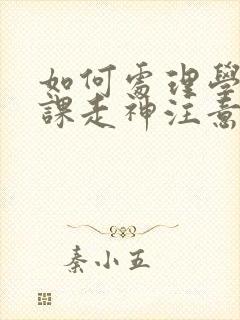 如何處理學
課走神注意
秦小五